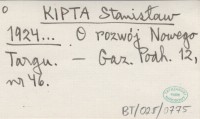 KIPTA Stanisław
1924... O rozwój Nowego
Targu. — Gaz. Podh. 12,
nr 46.
BT/025/0775